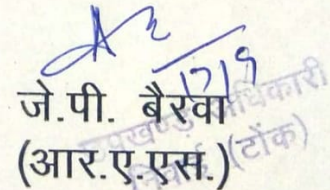 17/9
जे.पी. बैरवा
(आर.ए.एस.)
उपखण्ड अधिकारी
निवाई (टोंक)